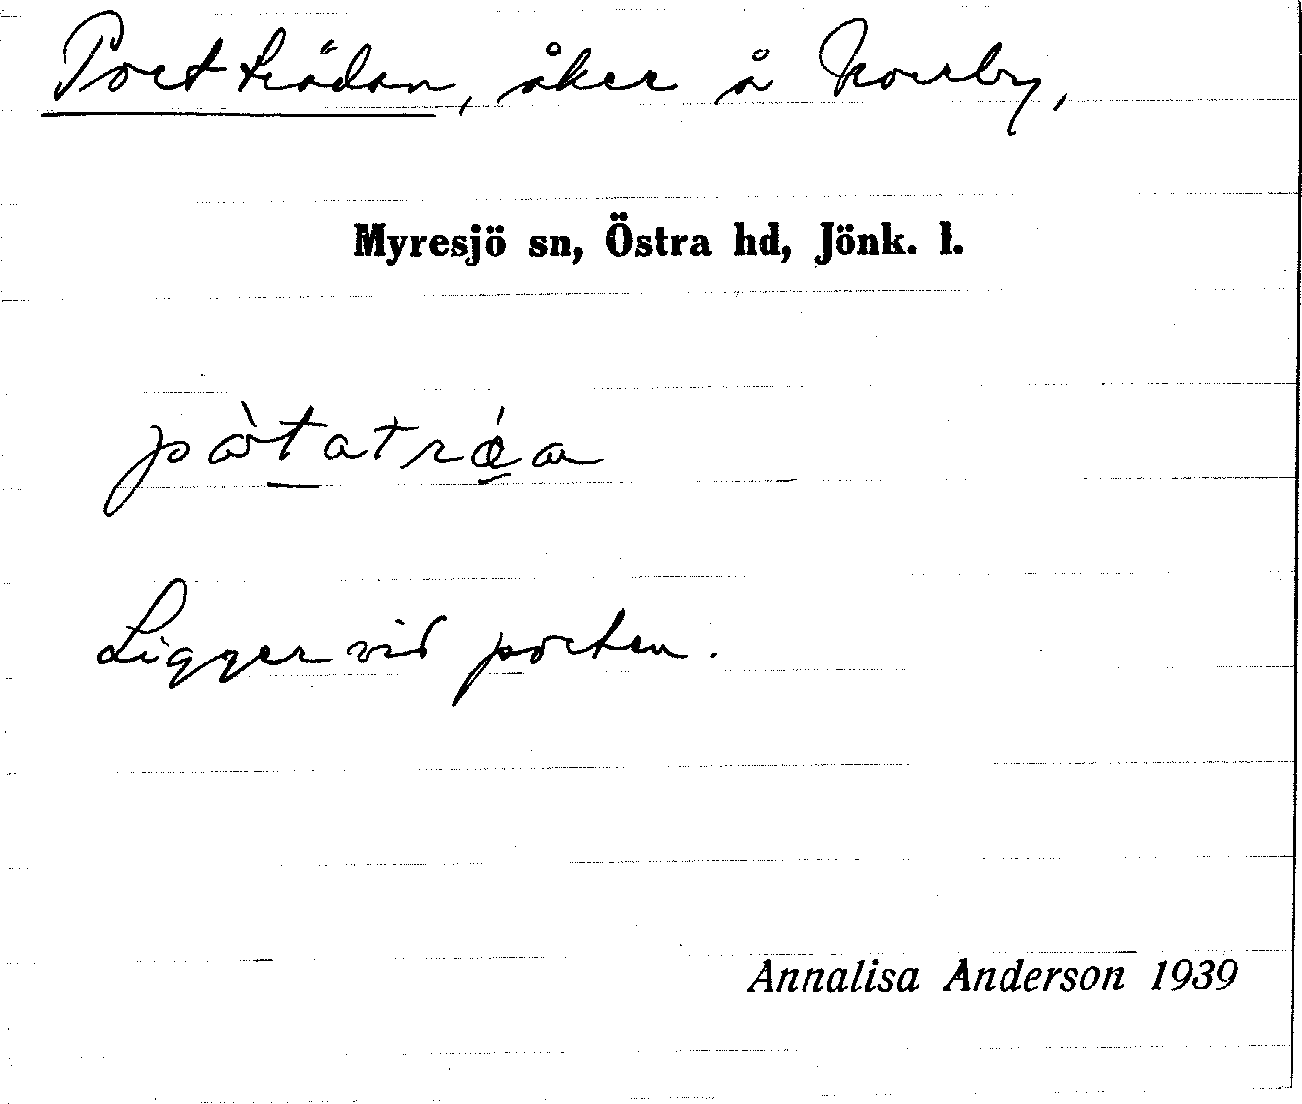 Portträdan, åker å Norrby,
Myresjö sn, Östra hd, Jönk. l.
pàtatrǽa
Ligger vid porten.
Annalisa Anderson 1939